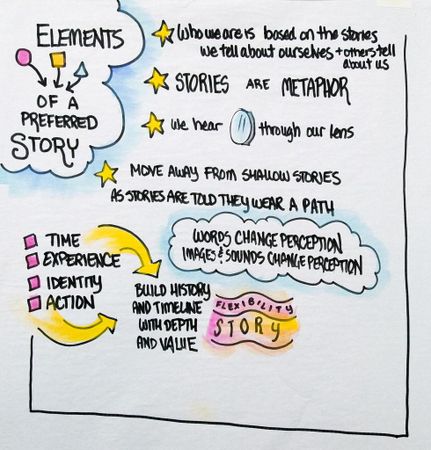 ELEMENTS
OF A
PREFERRED
STORY
Who we are is based on the stories
we tell about ourselves + others tell
about us
STORIES ARE METAPHOR
we hear through our lens
MOVE AWAY FROM SHALLOW STORIES
AS STORIES ARE TOLD THEY WEAR A PATH
WORDS CHANGE PERCEPTION
IMAGES & SOUNDS CHANGE PERCEPTION
TIME
EXPERIENCE
IDENTITY
ACTION
BUILD HISTORY
AND TIMELINE
WITH DEPTH
AND VALUE
FLEXIBILITY
STORY